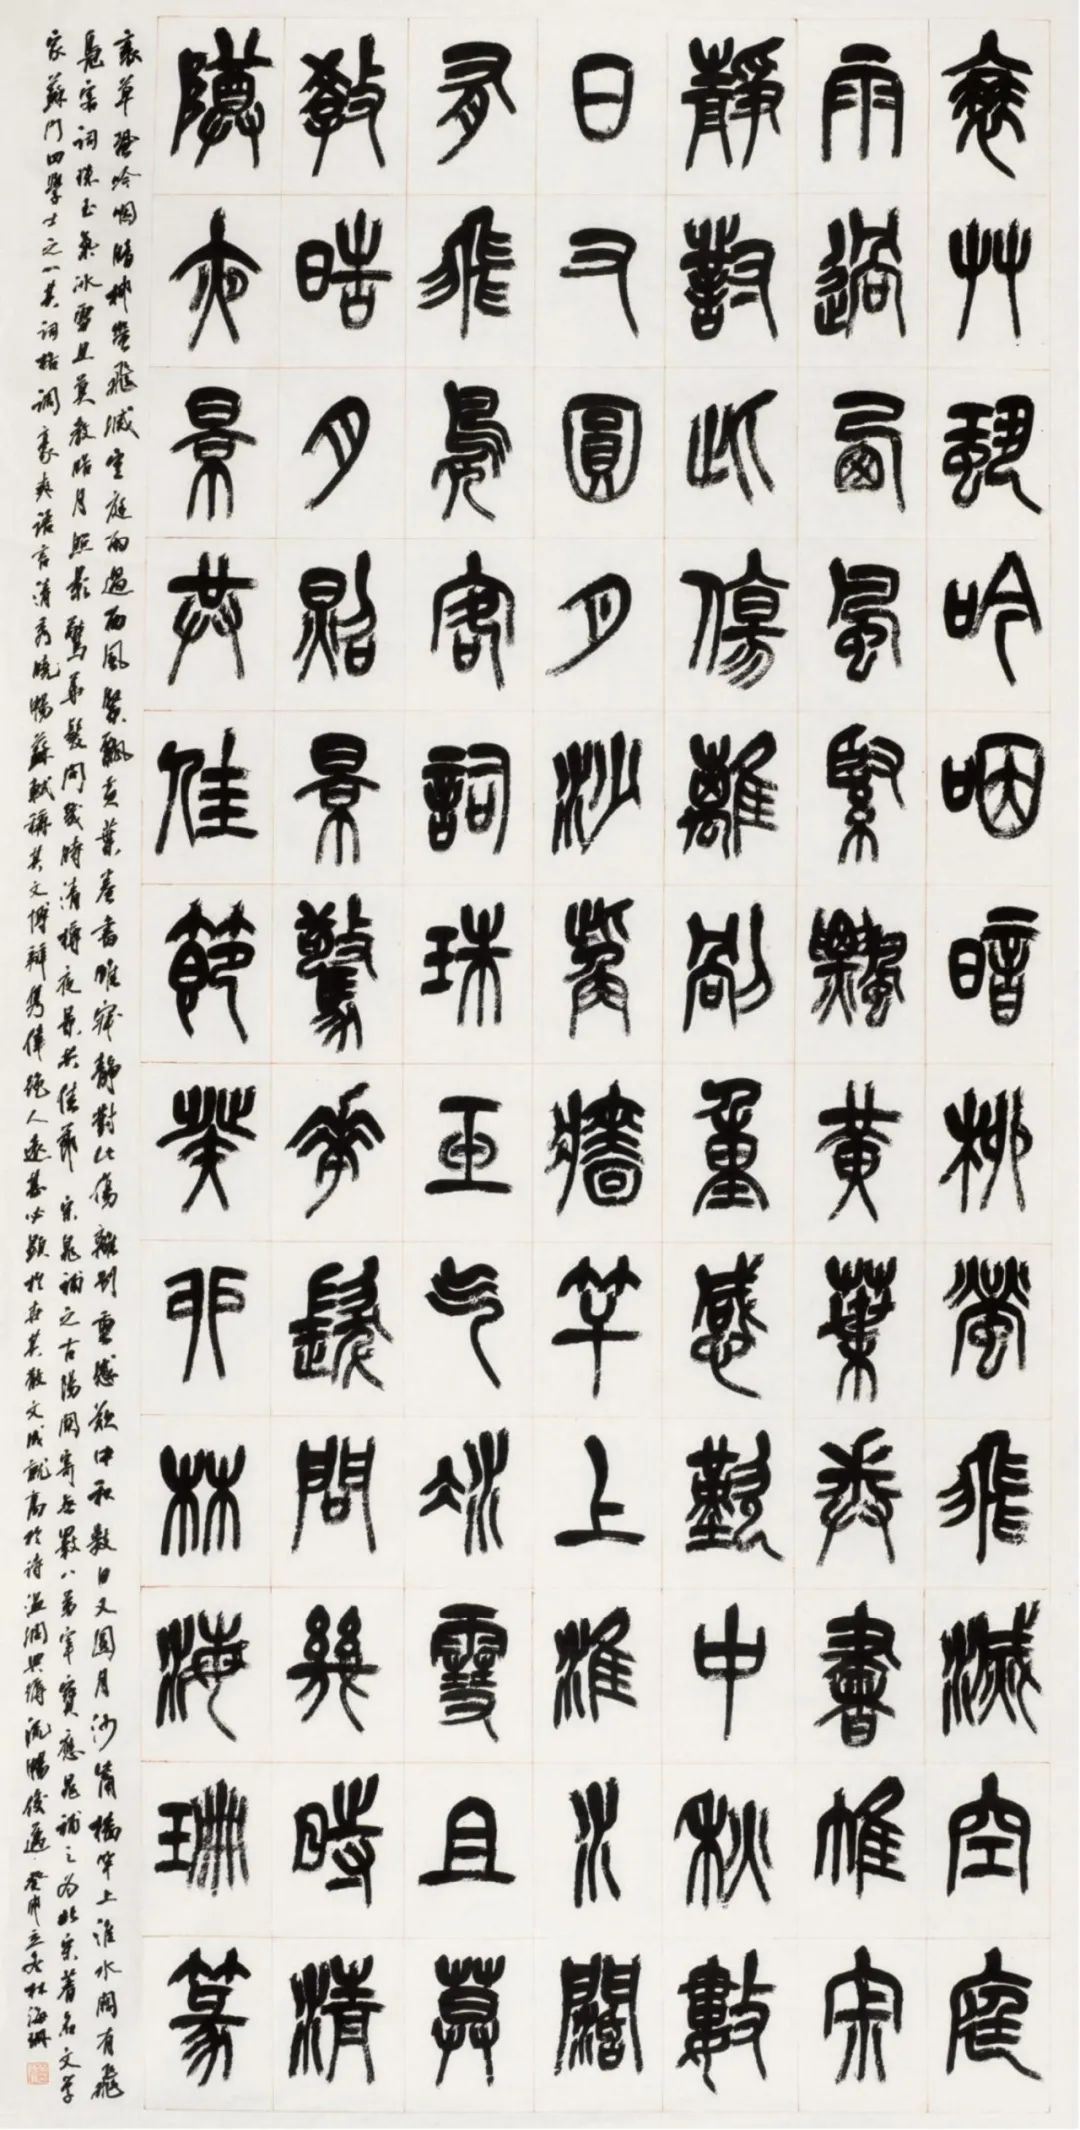 衰艸蛩吟咽暗柳螢飛滅空庭
雨過西風緊飄黃葉卷書帷寂
靜對此傷離別重感歎中秋數
日又圓月沙觜檣竿上淮水闊
有飛鳧客詞珠玉气冰雪且莫
教皓月照景驚華髮問幾時清
樽夜景共佳節癸卯林海珊篆
衰草蛩吟咽暗柳螢飛滅空庭雨過西風緊飄黃葉卷書帷寂靜對此傷離別重感歎中秋數日又圓月沙觜檣竿上淮水闊有飛
鳧客詞珠玉氣冰雪且莫教皓月照影驚華髮問幾時清樽夜景共佳節宋晁補之古陽關寄無斁八弟宰寶應晁補之為北宋著名文學
家蘇門四學士之一其詞格調豪爽語言清秀曉暢蘇軾稱其文博辯雋偉絕人遠甚必顯於世其散文成就高於詩溫潤典縟流暢俊邁癸卯立冬林海珊